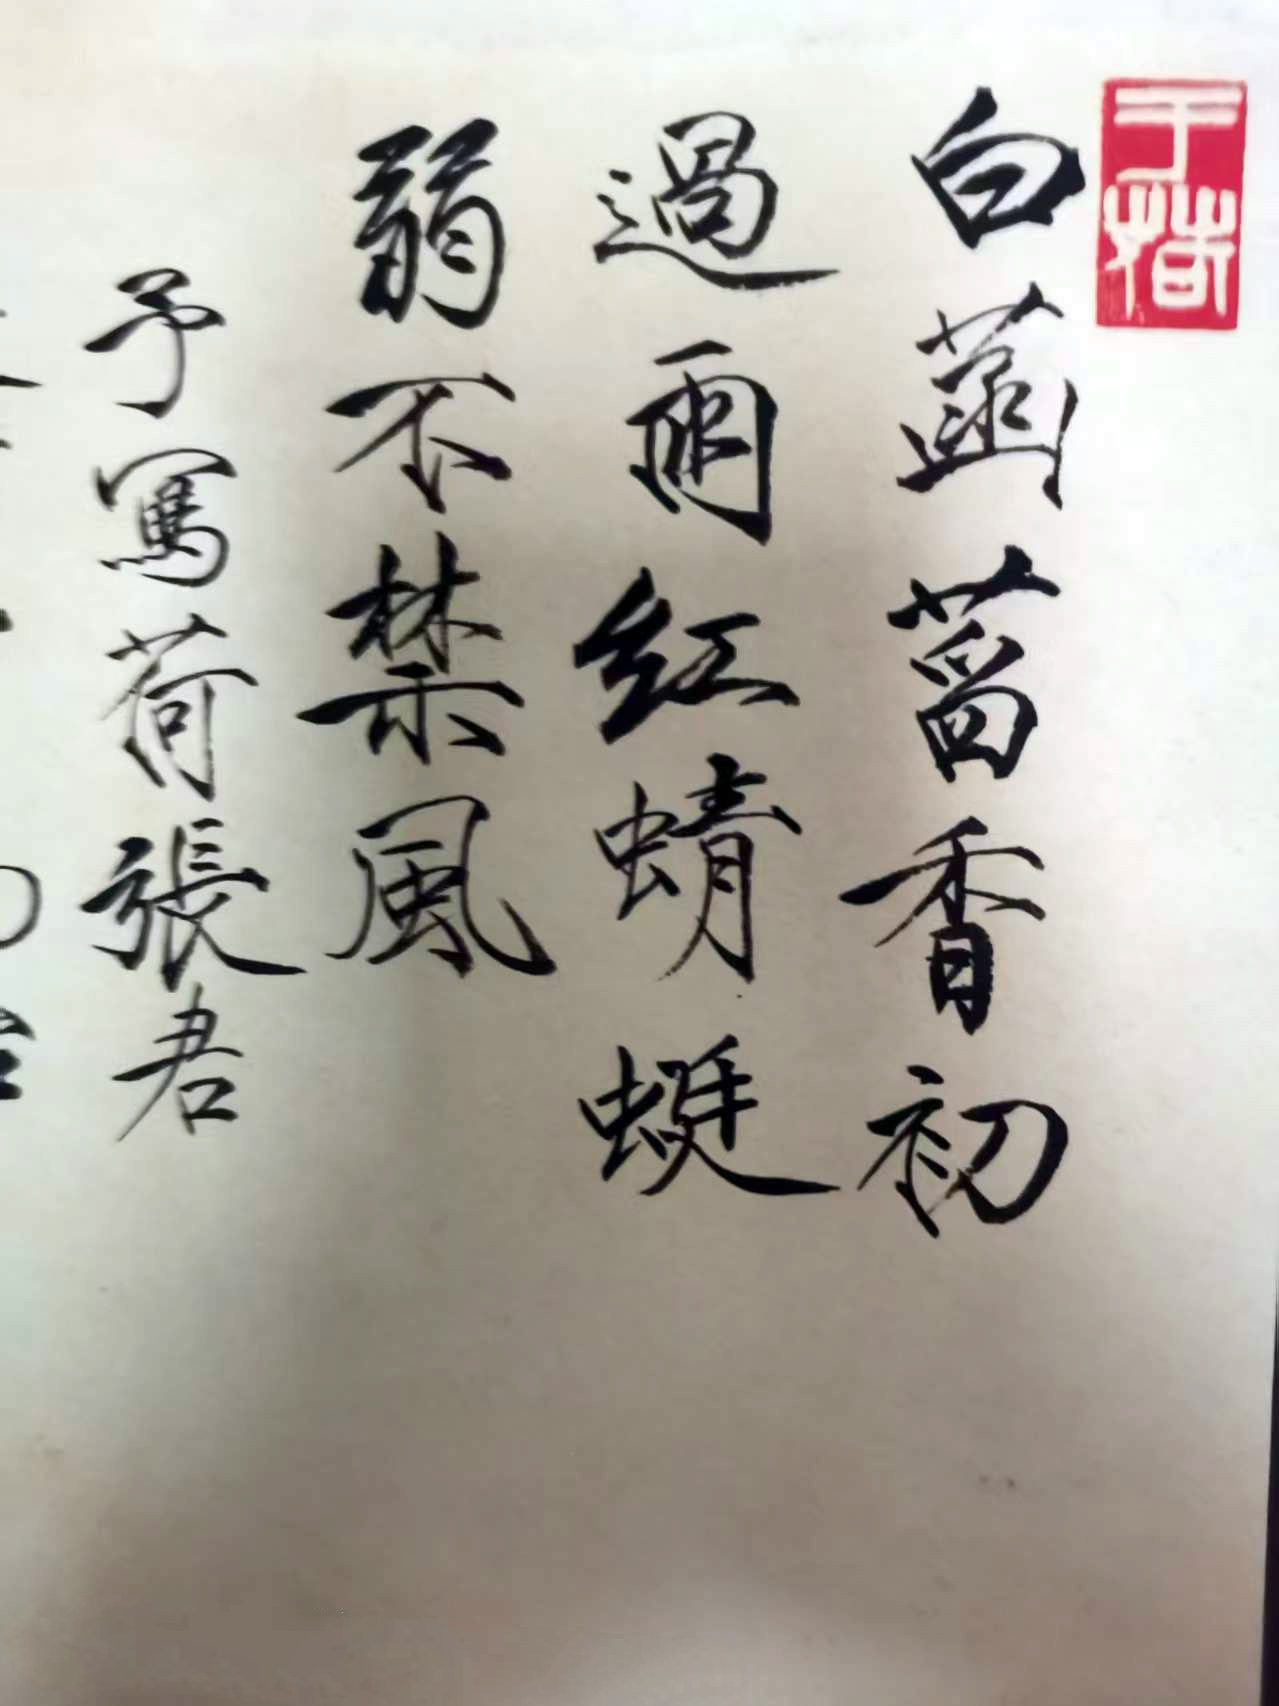 白菡萏香初
過雨紅蜻蜓
弱不禁風
予寫荷張君